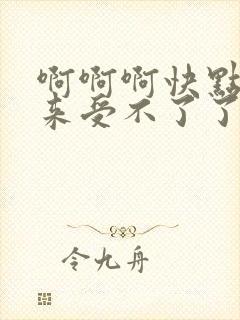 啊啊啊快點
来受不了了
令九舟